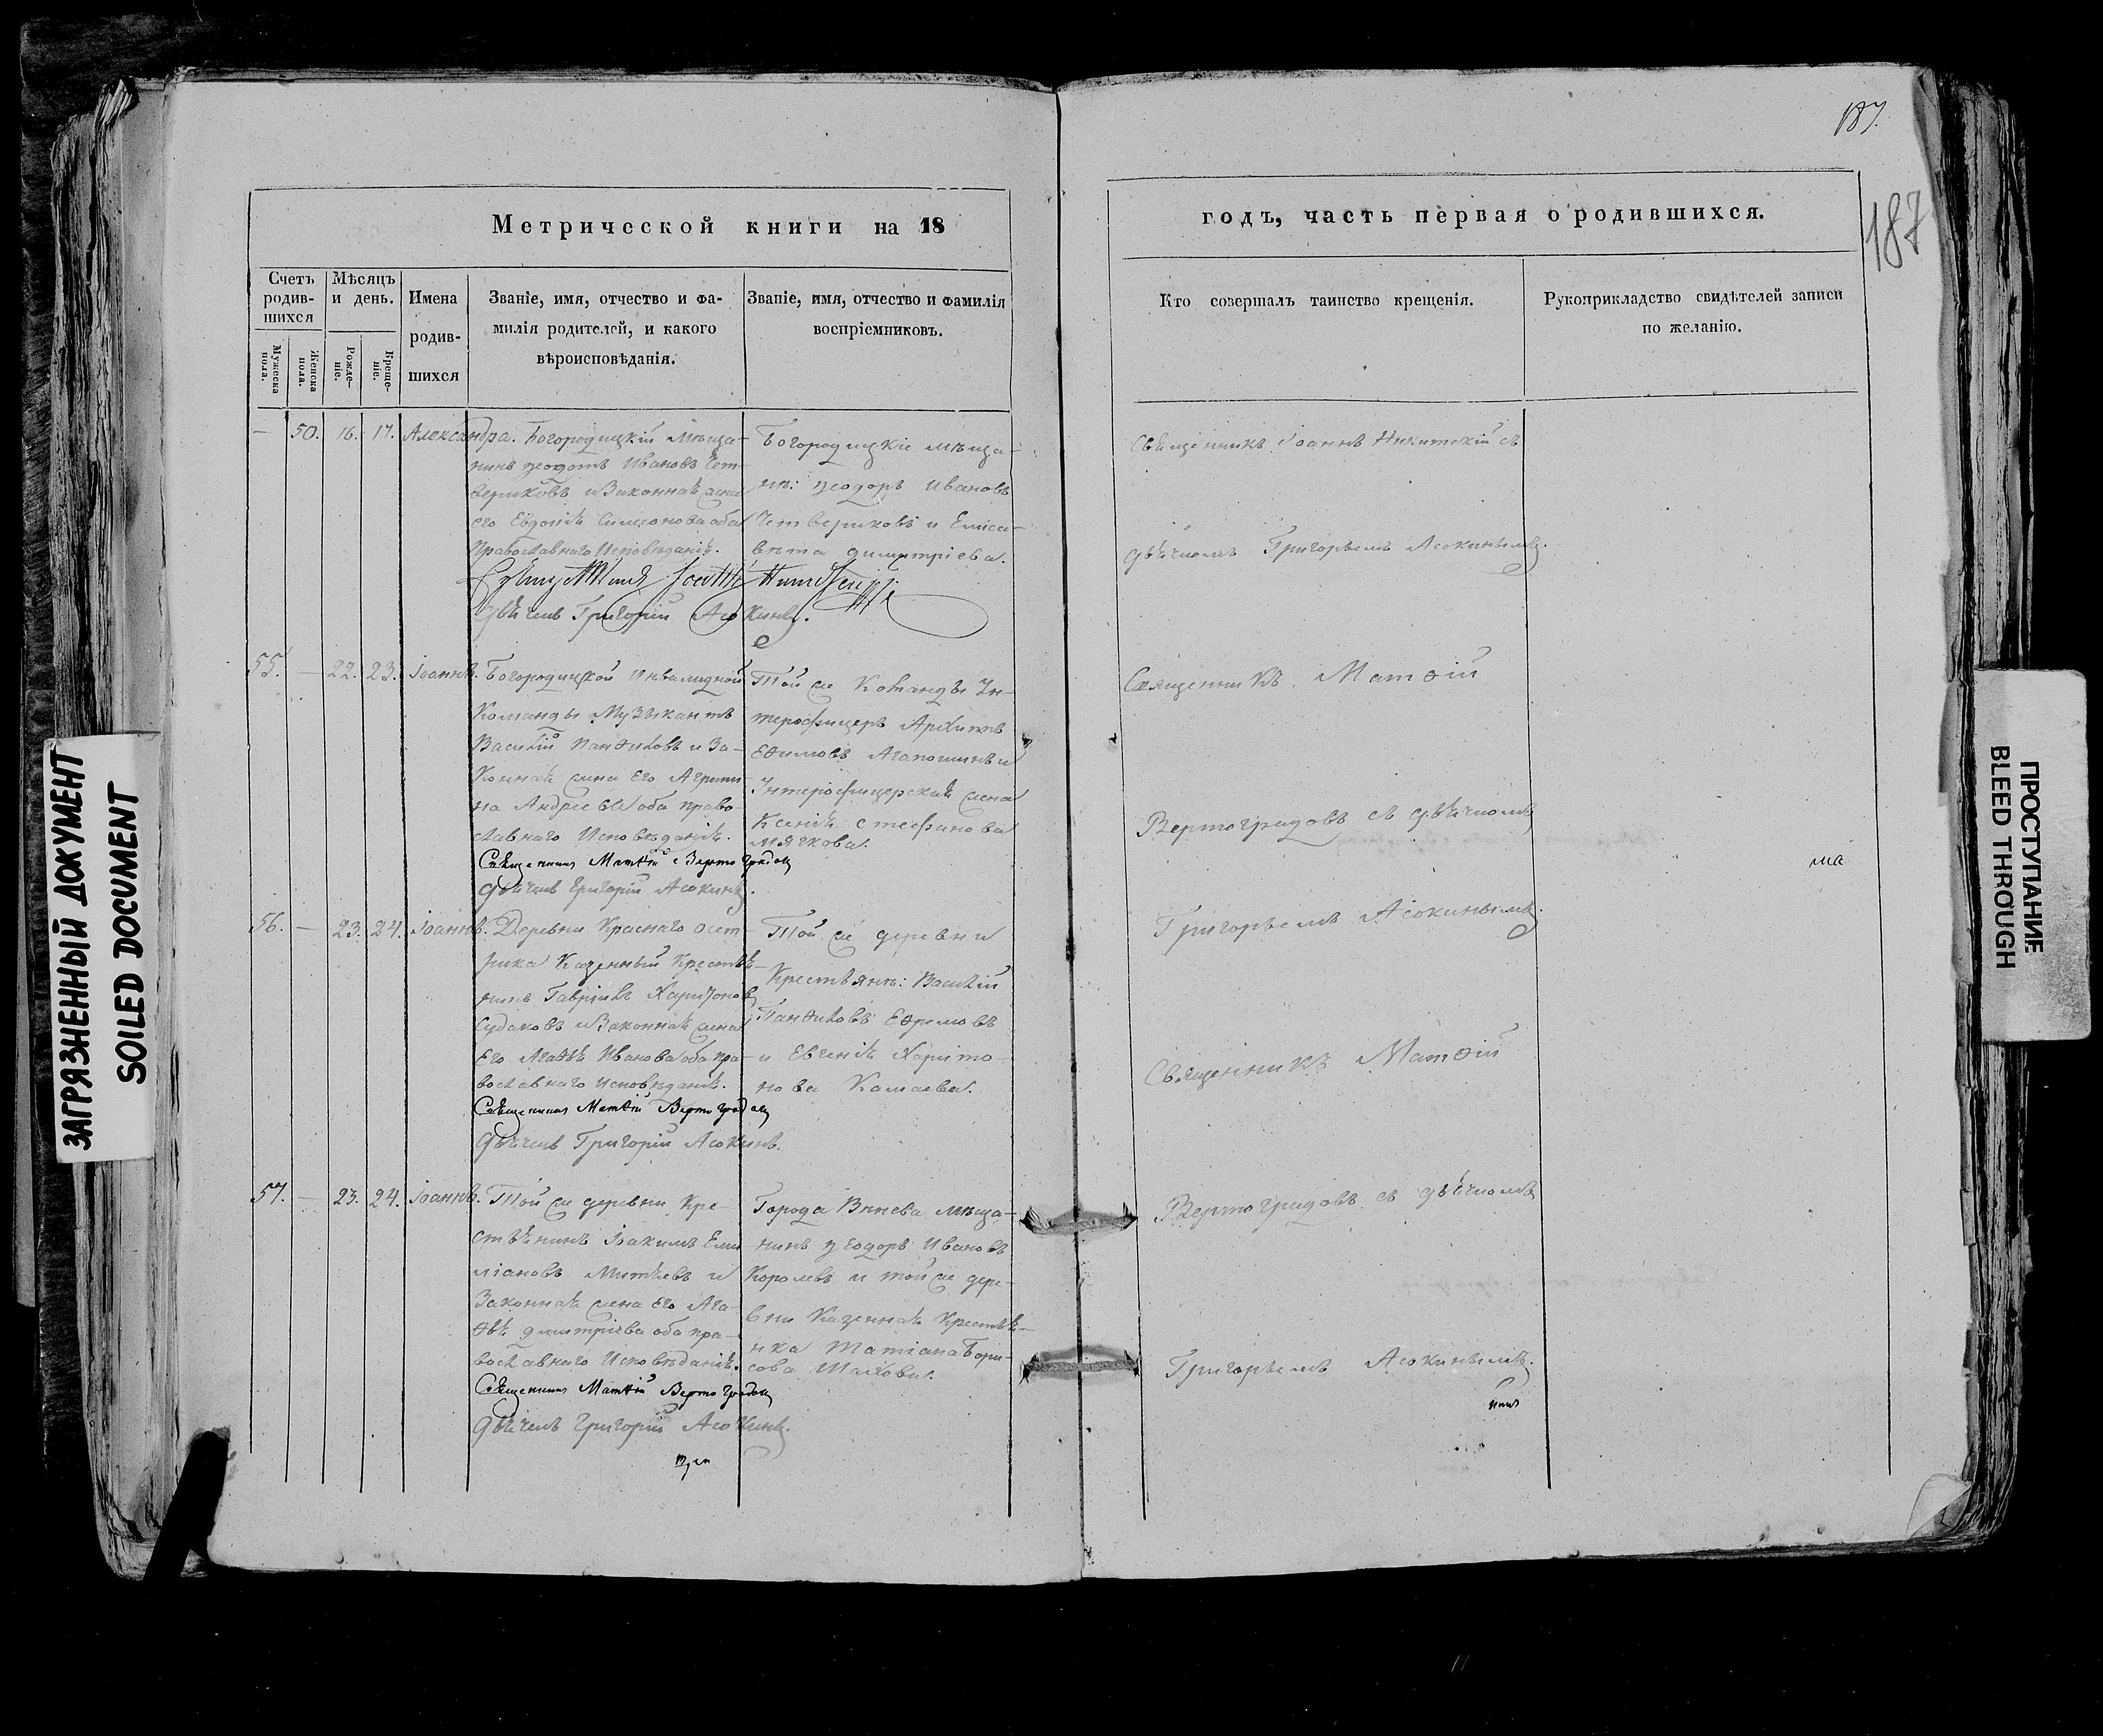 187.
187
Метрической книги на 18
годъ, часть первая о родившихся.
Счетъ родив-шихся
Мужеска пола.
Женска пола.
Мѣсяцъ и день.
Рожде-ніе.
Креще-ніе.
Имена родив-шихся
Званіе, имя, отчество и фа-
милія родителей, и какого
вѣроисповѣданія.
Званіе, имя, отчество и фамилія
воспріемниковъ.
Кто совершалъ таинство крещенія.
Рукоприкладство свидѣтелей записи
по желанію.
— 50. 16. 17. Александра.
Богородицкій мѣща-
нинъ Ивановъ Чет-
вериковъ и законная жена
его Евдокія Симеонова оба
православнаго исповѣданія.
Дьячекъ Григорій Асокинъ.
Богородицкіе мѣща-
не: Ѳеодоръ Ивановъ
Четвериковъ и Елиса-
вета Димитріева.
Священникъ Іоаннъ Никитскій съ
дьячкомъ Григорьемъ Асокинымъ.
55. — 22. 23. Іоаннъ.
Богородицкой Инвалидной
Команды Музыкантъ
Василій Панфиловъ и за-
конная жена его Агрипи
на Андреева оба право-
славнаго исповѣданія.
Священникъ Матѳій Вертоградовъ
Дьячекъ Григорій Асокинъ.
Той же Команды Ун-
терофицеръ Архипъ
Ефимовъ и
Унтерофицерская жена
Ксенія Стефанова
Мягкова.
Священникъ Матѳій
Вертоградовъ съ дьячкомъ
Григорьемъ Асокинымъ.
ма
56. — 23. 24. Іоаннъ.
Деревни Краснаго Осет
рика Казенный Крестья-
нинъ Гавріилъ Харитоновъ
Судаковъ и законная жена
его Агафья Иванова оба пра-
вославнаго исповѣданія.
Священникъ Матѳій Вертоградовъ
Дьячекъ Григорій Асокинъ.
Той же деревни
Крестьяне: Василій
Панфиловъ Ефремовъ
и Евгенія Харито-
нова Камаева.
Священникъ Матѳій
Вертоградовъ съ дьячкомъ
Григорьемъ Асокинымъ.
57. — 23. 24. Іоаннъ.
Той же деревни Кре-
стьянинъ Іоакимъ Еми
ліановъ Митяевъ и
законная жена его Ага-
фья Димитріева оба пра-
вославнаго исповѣданія.
Священникъ Матѳій Вертоградовъ
Дьячекъ Григорій Асокинъ.
Города Венева мѣща-
нинъ Ѳеодоръ Ивановъ
Королевъ и той же дере-
вни Казенная Крестья-
нка Татіана Бори-
сова
ЗАГРЯЗНЕННЫЙ ДОКУМЕНТ
SOILED DOCUMENT
ПРОСТУПАНИЕ
BLEED THROUGH